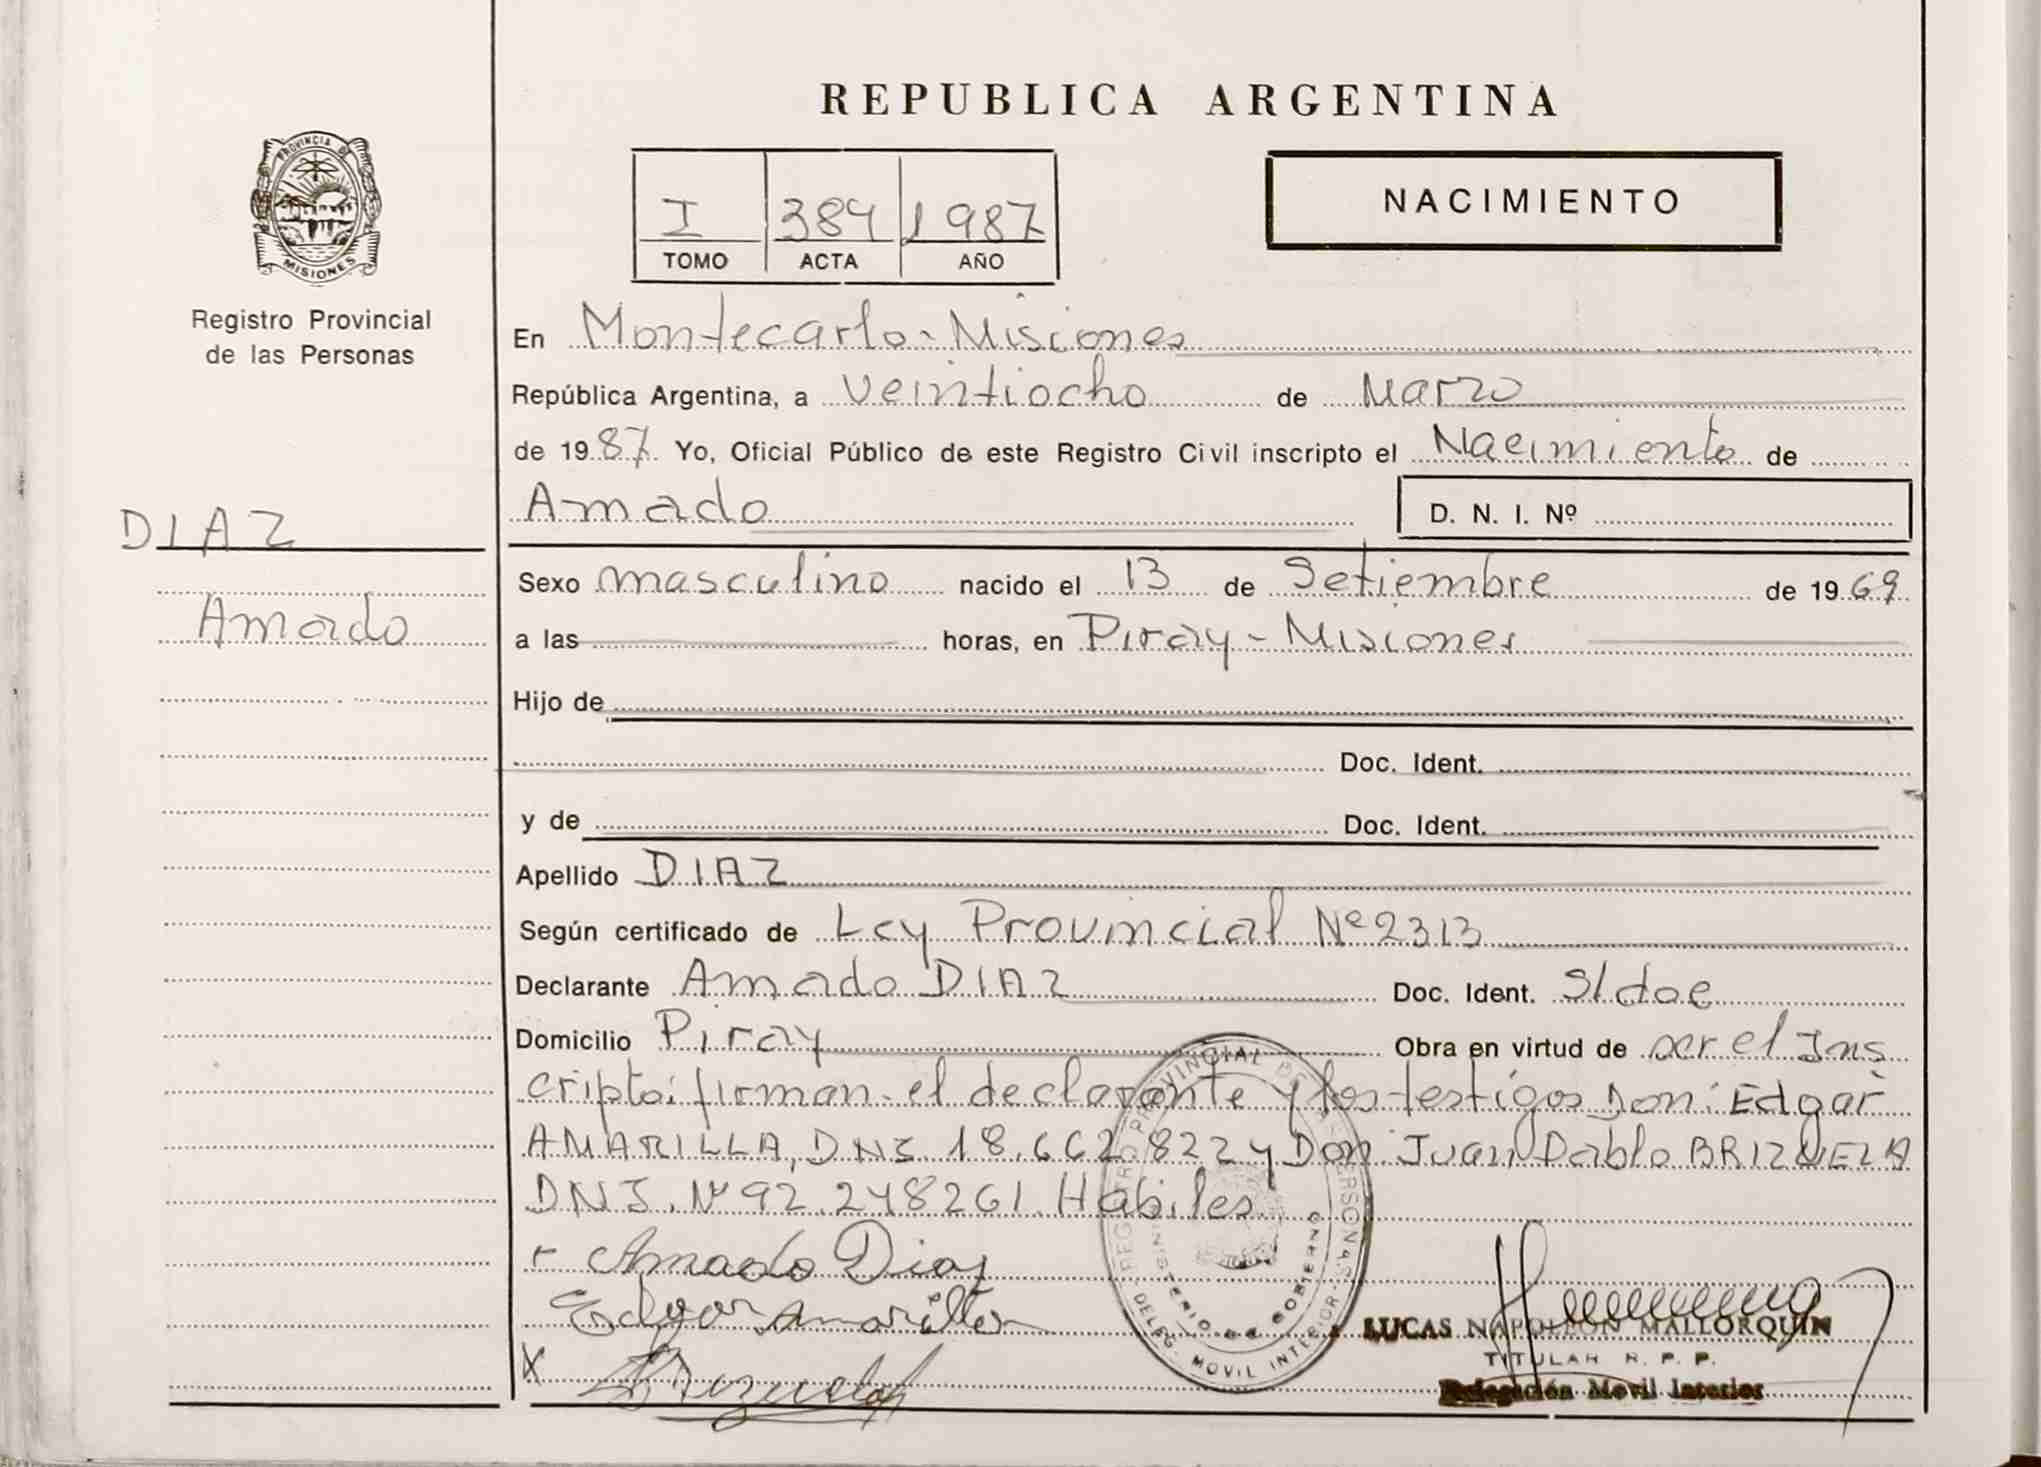 REPUBLICA ARGENTINA
PROVINCIA DE
MISIONES
Registro Provincial
de las Personas
I 384 1987
TOMO ACTA AÑO
NACIMIENTO
En Montecarlo - Misiones
República Argentina, a veintiocho de Marzo
de 1987. Yo, Oficial Público de este Registro Civil inscripto el Nacimiento de
Amado D. N. I. Nº
DIAZ
Amado
Sexo masculino nacido el 13 de Setiembre de 1969
a las horas, en Piray - Misiones
Hijo de
Doc. Ident.
y de Doc. Ident.
Apellido DIAZ
Según certificado de Ley Provincial Nº 2313
Declarante Amado DIAZ Doc. Ident. S/doc
Domicilio Piray Obra en virtud de ser el Ins
cripto: firman el declarante y los testigos Don: Edgar
AMARILLA, DNI. 18.662.822 y Don. Juan Pablo BRIZUELA
DNI. Nº 92.248261. Habiles
Amado Diaz
Edgar Amarilla
X Brizuela
REGISTRO PROVINCIAL DE LAS PERSONAS
MINISTERIO DE GOBIERNO
DELEG. MOVIL INTERIOR
LUCAS NAPOLEON MALLORQUIN
TITULAR R. P. P.
Delegación Movil Interior